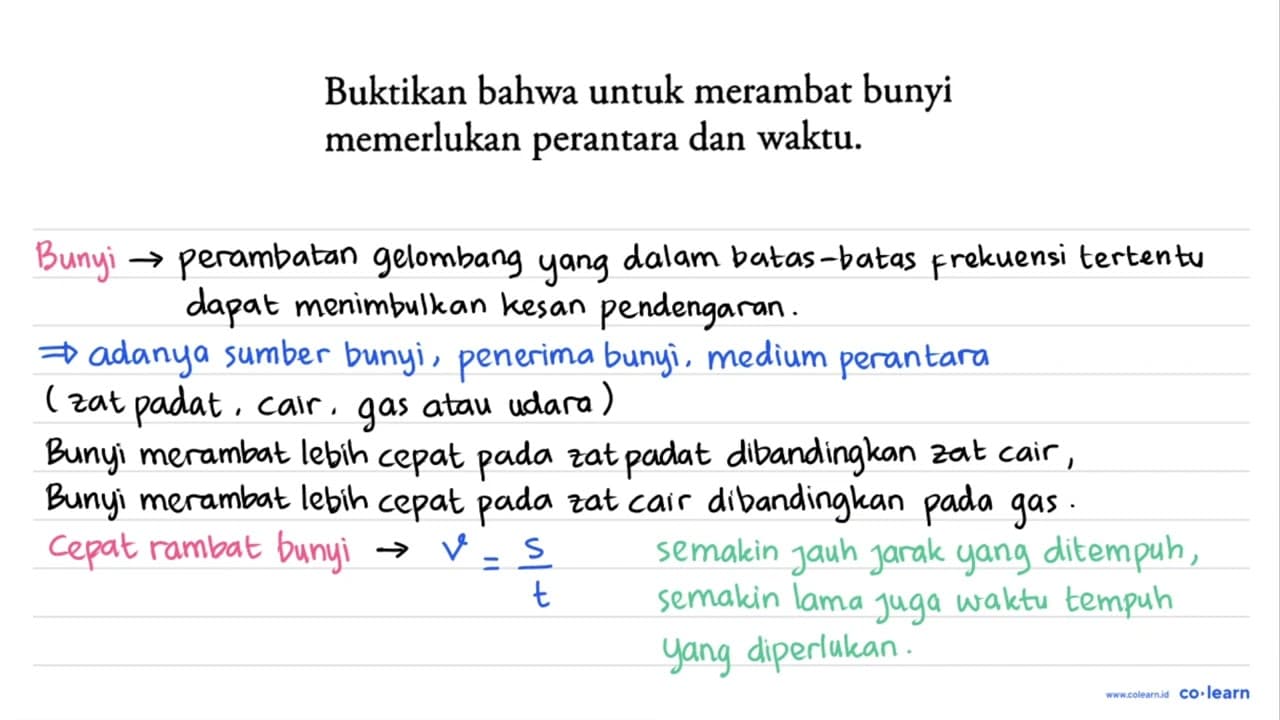 Buktikan bahwa untuk merambat bunyi
memerlukan perantara dan waktu.
Bunyi → perambatan gelombang yang dalam batas-batas frekuensi tertentu
dapat menimbulkan kesan pendengaran.
⇒ adanya sumber bunyi, penerima bunyi, medium perantara
(zat padat, cair, gas atau udara)
Bunyi merambat lebih cepat pada zat padat dibandingkan zat cair,
Bunyi merambat lebih cepat pada zat cair dibandingkan pada gas.
Cepat rambat bunyi → v = s/t
semakin jauh jarak yang ditempuh,
semakin lama juga waktu tempuh
yang diperlukan.
www.colearn.id co·learn